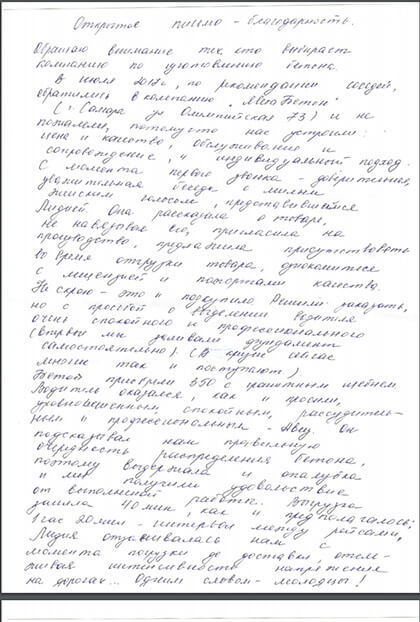 Открытое письмо - благодарность.
Обращаю внимание тех, кто выбирает
компанию по изготовлению бетона.
В июле 2017г, по рекомендации соседей,
обратились в компанию "МегаБетон"
(г. Самара ул Олимпийская 73) и не
пожалели, потому что нас устроили:
цена и качество, обслуживание и
сопровождение, и индивидуальный подход.
С момента первого звонка - доверительная,
уважительная беседа с милым
женским голосом, представившейся
Лидией. Она рассказала о товаре,
не навязывая его, пригласила на
производство, предложила присутствовать
во время отгрузки товара, ознакомиться
с лицензией и паспортами качества.
Не скрою - это и подкупило. Решили заказать,
но с просьбой о выделении водителя
очень спокойного и профессионального
(впервые мы заливали фундамент
самостоятельно). (В кризис сейчас
многие так и поступают).
Бетон привезли 350 с гранитным щебнем.
Водитель оказался, как и просили,
уравновешенным, спокойным, рассудитель-
ным и профессиональным - Авиц. Он
подсказывал нам правильную
очередность распределения бетона,
поэтому выдержала и опалубка
и мы получили удовольствие
от выполненой работы. Отгрузка
заняла 40 мин, как и предполагалось;
1 час 20 мин - интервал между рейсами,
Лидия отзванивалась нам с
момента погрузки до доставки, отсле-
живая интенсивность напряжения
на дорогах... Одним словом - молодцы!